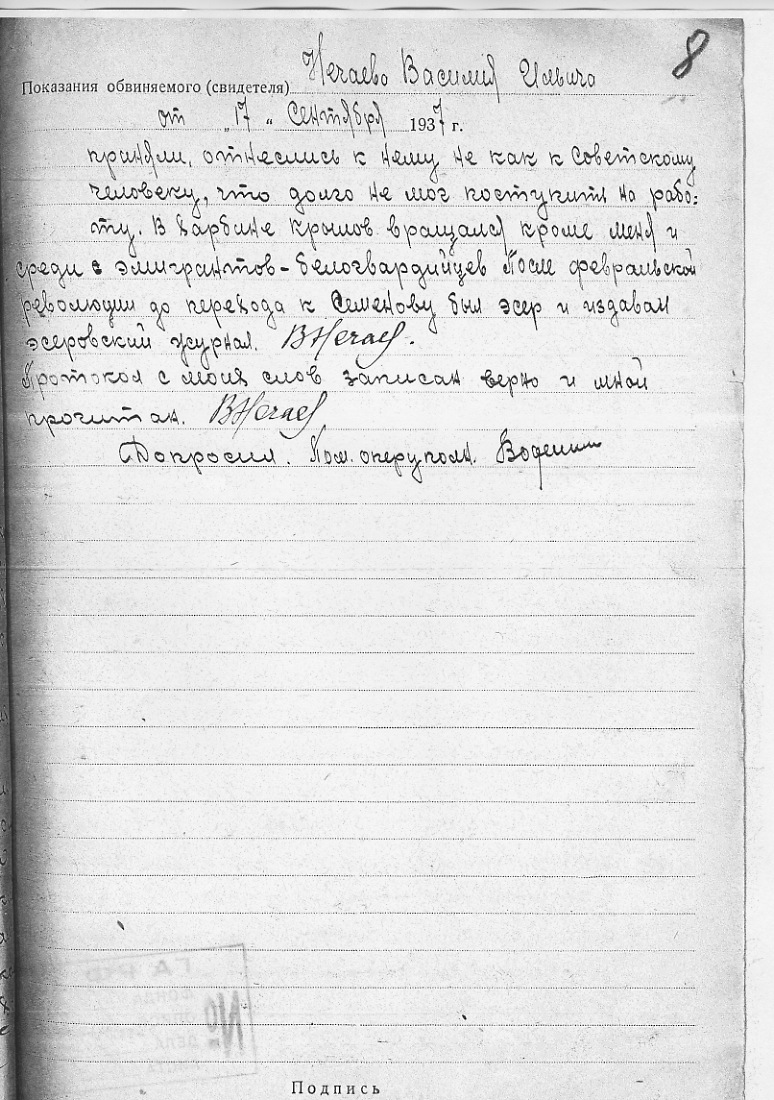 8
Показания обвиняемого (свидетеля) Нечаева Василия Ильича
от „17“ Сентября 1937 г.
приняли, отнеслись к нему не как к Советскому
человеку, что долго не мог поступить на рабо-
ту. В Харбине Крымов вращался кроме меня и
среди эмигрантов-белогвардийцев После февральской
революции до перехода к Семенову был эсер и издавал
эсеровский журнал. ВНечаев.
Протокол с моих слов записан верно и мной
прочитан. ВНечаев
Допросил. Пом. оперуполн.
ГАРФ
ФОНД
ОПИСЬ
№ ДЕЛА
ЛИСТА
Подпись